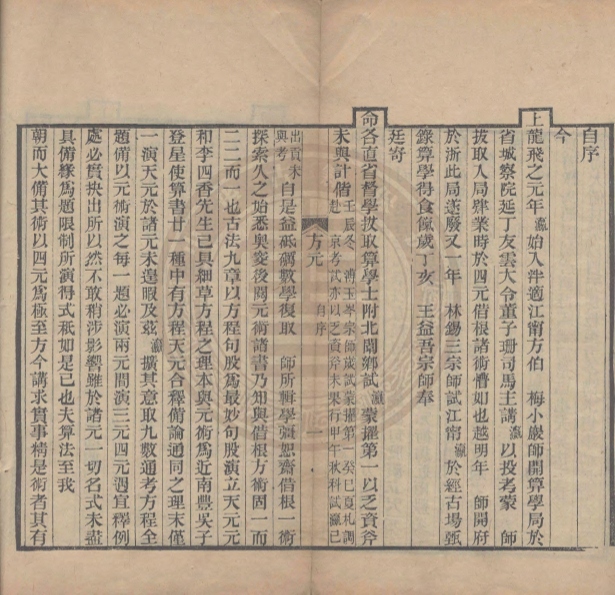 自序
今
上龍飛之元年瀛始入泮適江甯方伯 梅小巖師開算學局於
省城察院延丁友雲大令董子珊司馬主講瀛以投考蒙 師
拔取入局肄業時於四元借根諸術懵如也越明年 師開府
於浙此局遂廢又一年 林錫三宗師試江甯瀛於經古場甄
錄算學得食餼歲丁亥 王益吾宗師奉
廷寄
命各直省督學拔取算學士附北闈鄉試瀛蒙擢第一以乏資斧
未與計偕壬辰冬 溥玉岑宗師歲試蒙擢第一癸巳夏札調
赴 京考試亦以乏資斧未果行甲午秋科試瀛已
方元 自序 一
出貢未
與考自是益砥礪數學復取 師所輯學彊恕齋借根一術
探索久之始悉奧窔後閱元術諸書乃知與借根方術固一而
二二而一也古法九章以方程句股爲最妙句股演立天元元
和李四香先生已具細草方程之理本與元術爲近南豐吳子
登星使算書廿一種中有方程天元合釋備論通同之理未僅
一演天元於諸元未遑暇及茲瀛擴其意取九數通考方程全
題備以元術演之每一題必演兩元間演三元四元遇宜釋例
處必實抉出所以然不敢稍涉影響雖於諸元一切名式未盡
具備緣爲題限制所演得式祇如是已也夫算法至我
朝而大備其術以四元爲極至方今講求實事精是術者其有